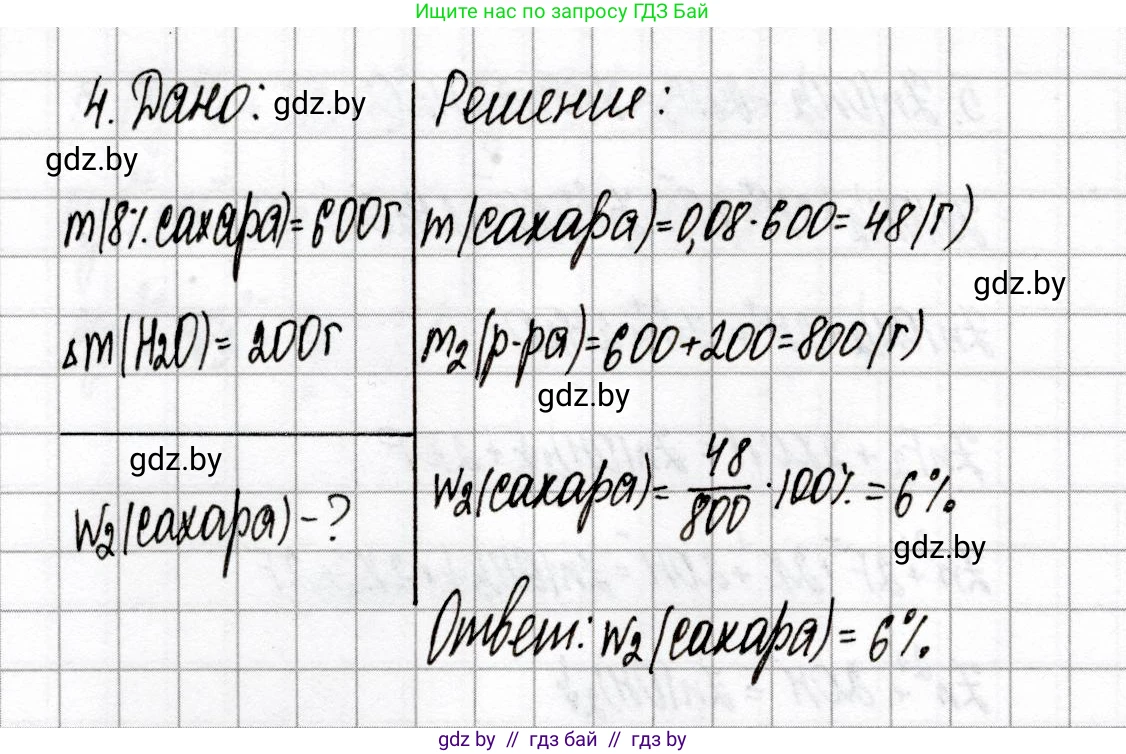 Ищите нас по запросу ГДЗ Бай
4. Дано: gdz.by
gdz.by
m(8% сахара)=600г
Δm(H₂O)= 200г
gdz.by
w₂(сахара) - ?
Решение:
m(сахара)=0,08·600= 48(г)
gdz.by
m₂(р-ра)=600+200=800(г)
gdz.by
w₂(сахара)= 48/800 ·100% = 6%.
gdz.by
Ответ: w₂(сахара)= 6%.
gdz.by // гдз бай // гдз by